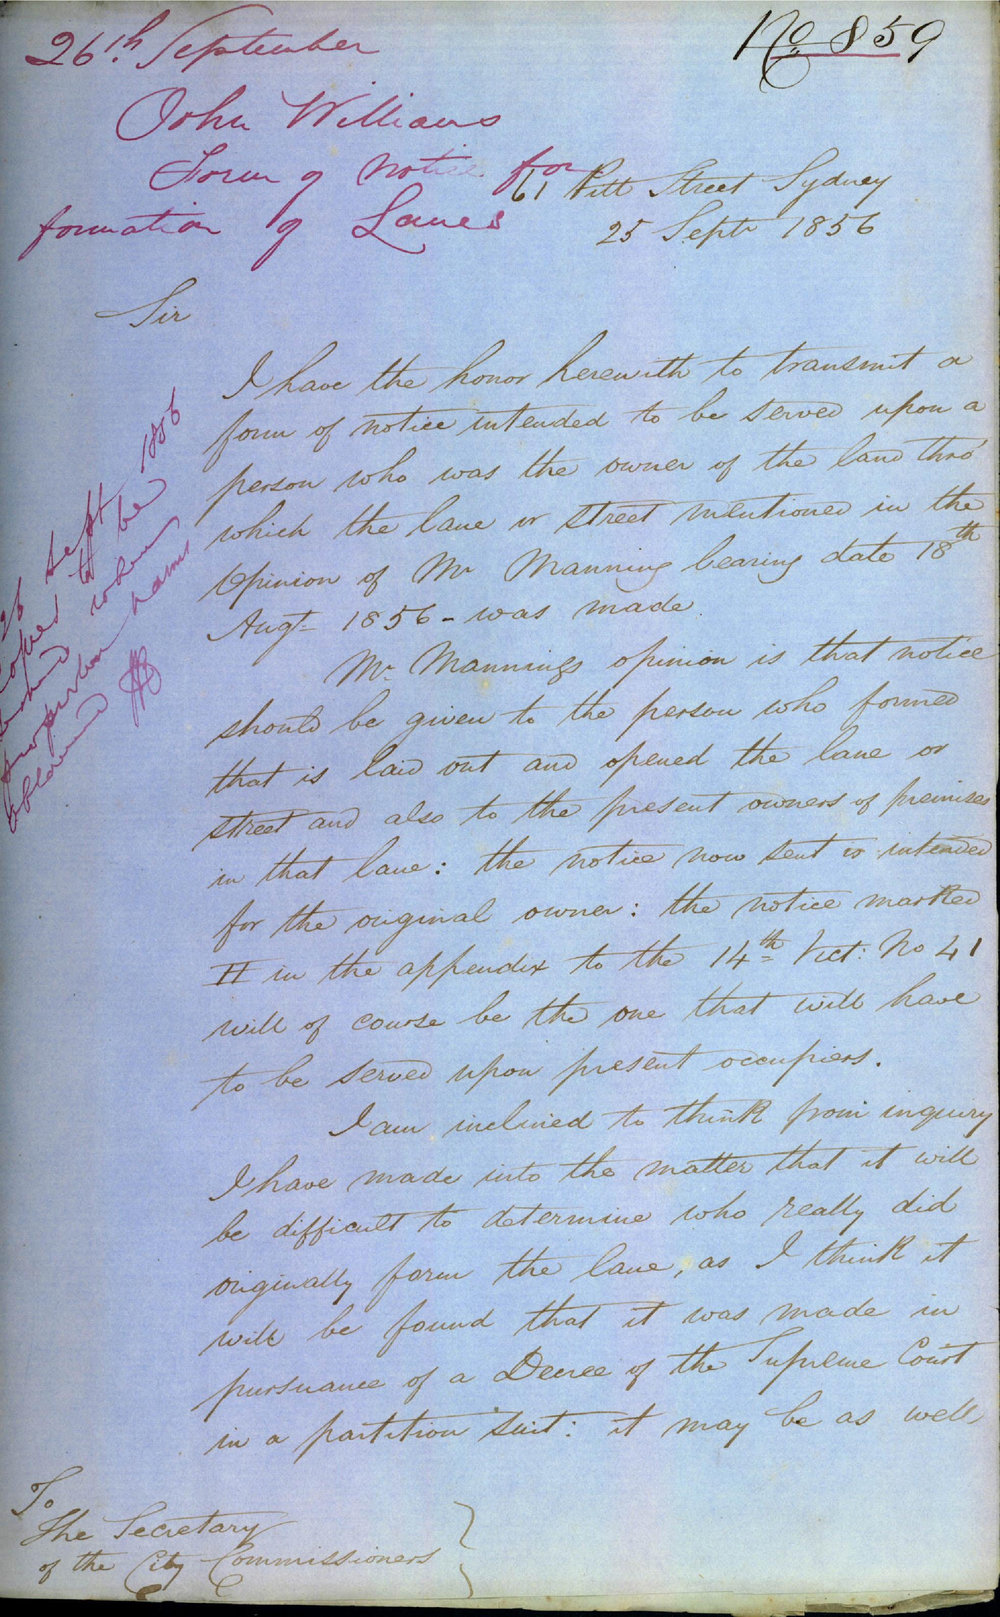 26th September
No 859
John Williams
Form of Notice for
formation of Lanes
61 Pitt Street Sydney
25 Septr 1856
Sir
I have the honor herewith to transmit a
form of notice intended to be served upon a
person who was the owner of the land thro'
which the lane or street mentioned in the
Opinion of Mr Manning bearing date 18th
Augt 1856 - was made.
Mr Mannings opinion is that notice
should be given to the person who formed
that is laid out and opened the lane or
street and also to the present owners of premises
in that lane: the notice now sent is intended
for the original owner: the notice marked
H in the appendix to the 14th Vict: No 41
will of course be the one that will have
to be served upon present occupiers.
I am inclined to think from inquiry
I have made into the matter that it will
be difficult to determine who really did
originally form the lane, as I think it
will be found that it was made in
pursuance of a Decree of the Supreme Court
in a partition suit: it may be as well
26 Sept 1856
Copies to be
when
names
obtained
To
The Secretary
of the City Commissioners